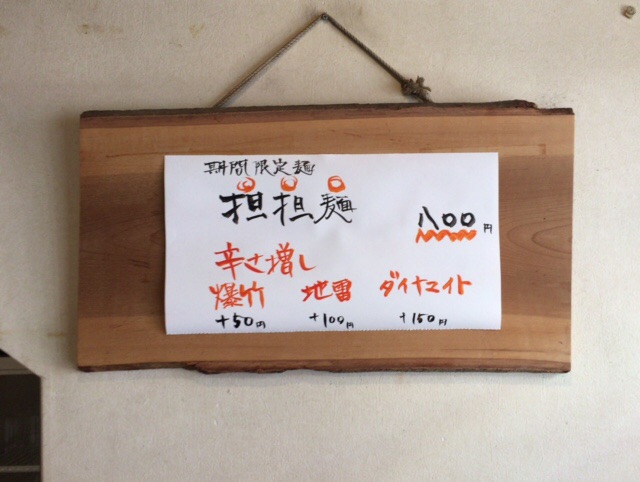 期間限定麺
担担麺
八〇〇円
辛さ増し
爆竹 地雷 ダイナマイト
+50円 +100円 +150円